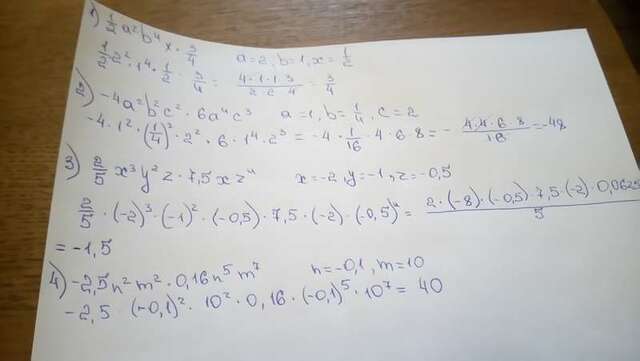 1) 1/2 a²b⁴x · 3/4 a=2, b=1, x=1/2
1/2 · 2² · 1⁴ · 1/2 · 3/4 = (4·1·1·3)/(2·2·4) = 3/4
2) -4a²b²c² · 6a⁴c³ a=1, b=1/4, c=2
-4 · 1² · (1/4)² · 2² · 6 · 1⁴ · 2³ = -4 · 1/16 · 4 · 6 · 8 = - (4·4·6·8)/16 = -48
3) 2/5 x³y²z · 7,5xz⁴ x=-2, y=-1, z=-0,5
2/5 · (-2)³ · (-1)² · (-0,5) · 7,5 · (-2) · (-0,5)⁴ = (2·(-8)·(-0,5)·7,5·(-2)·0,0625)/5
= -1,5
4) -2,5n²m² · 0,16n⁵m⁷ n=-0,1, m=10
-2,5 · (-0,1)² · 10² · 0,16 · (-0,1)⁵ · 10⁷ = 40